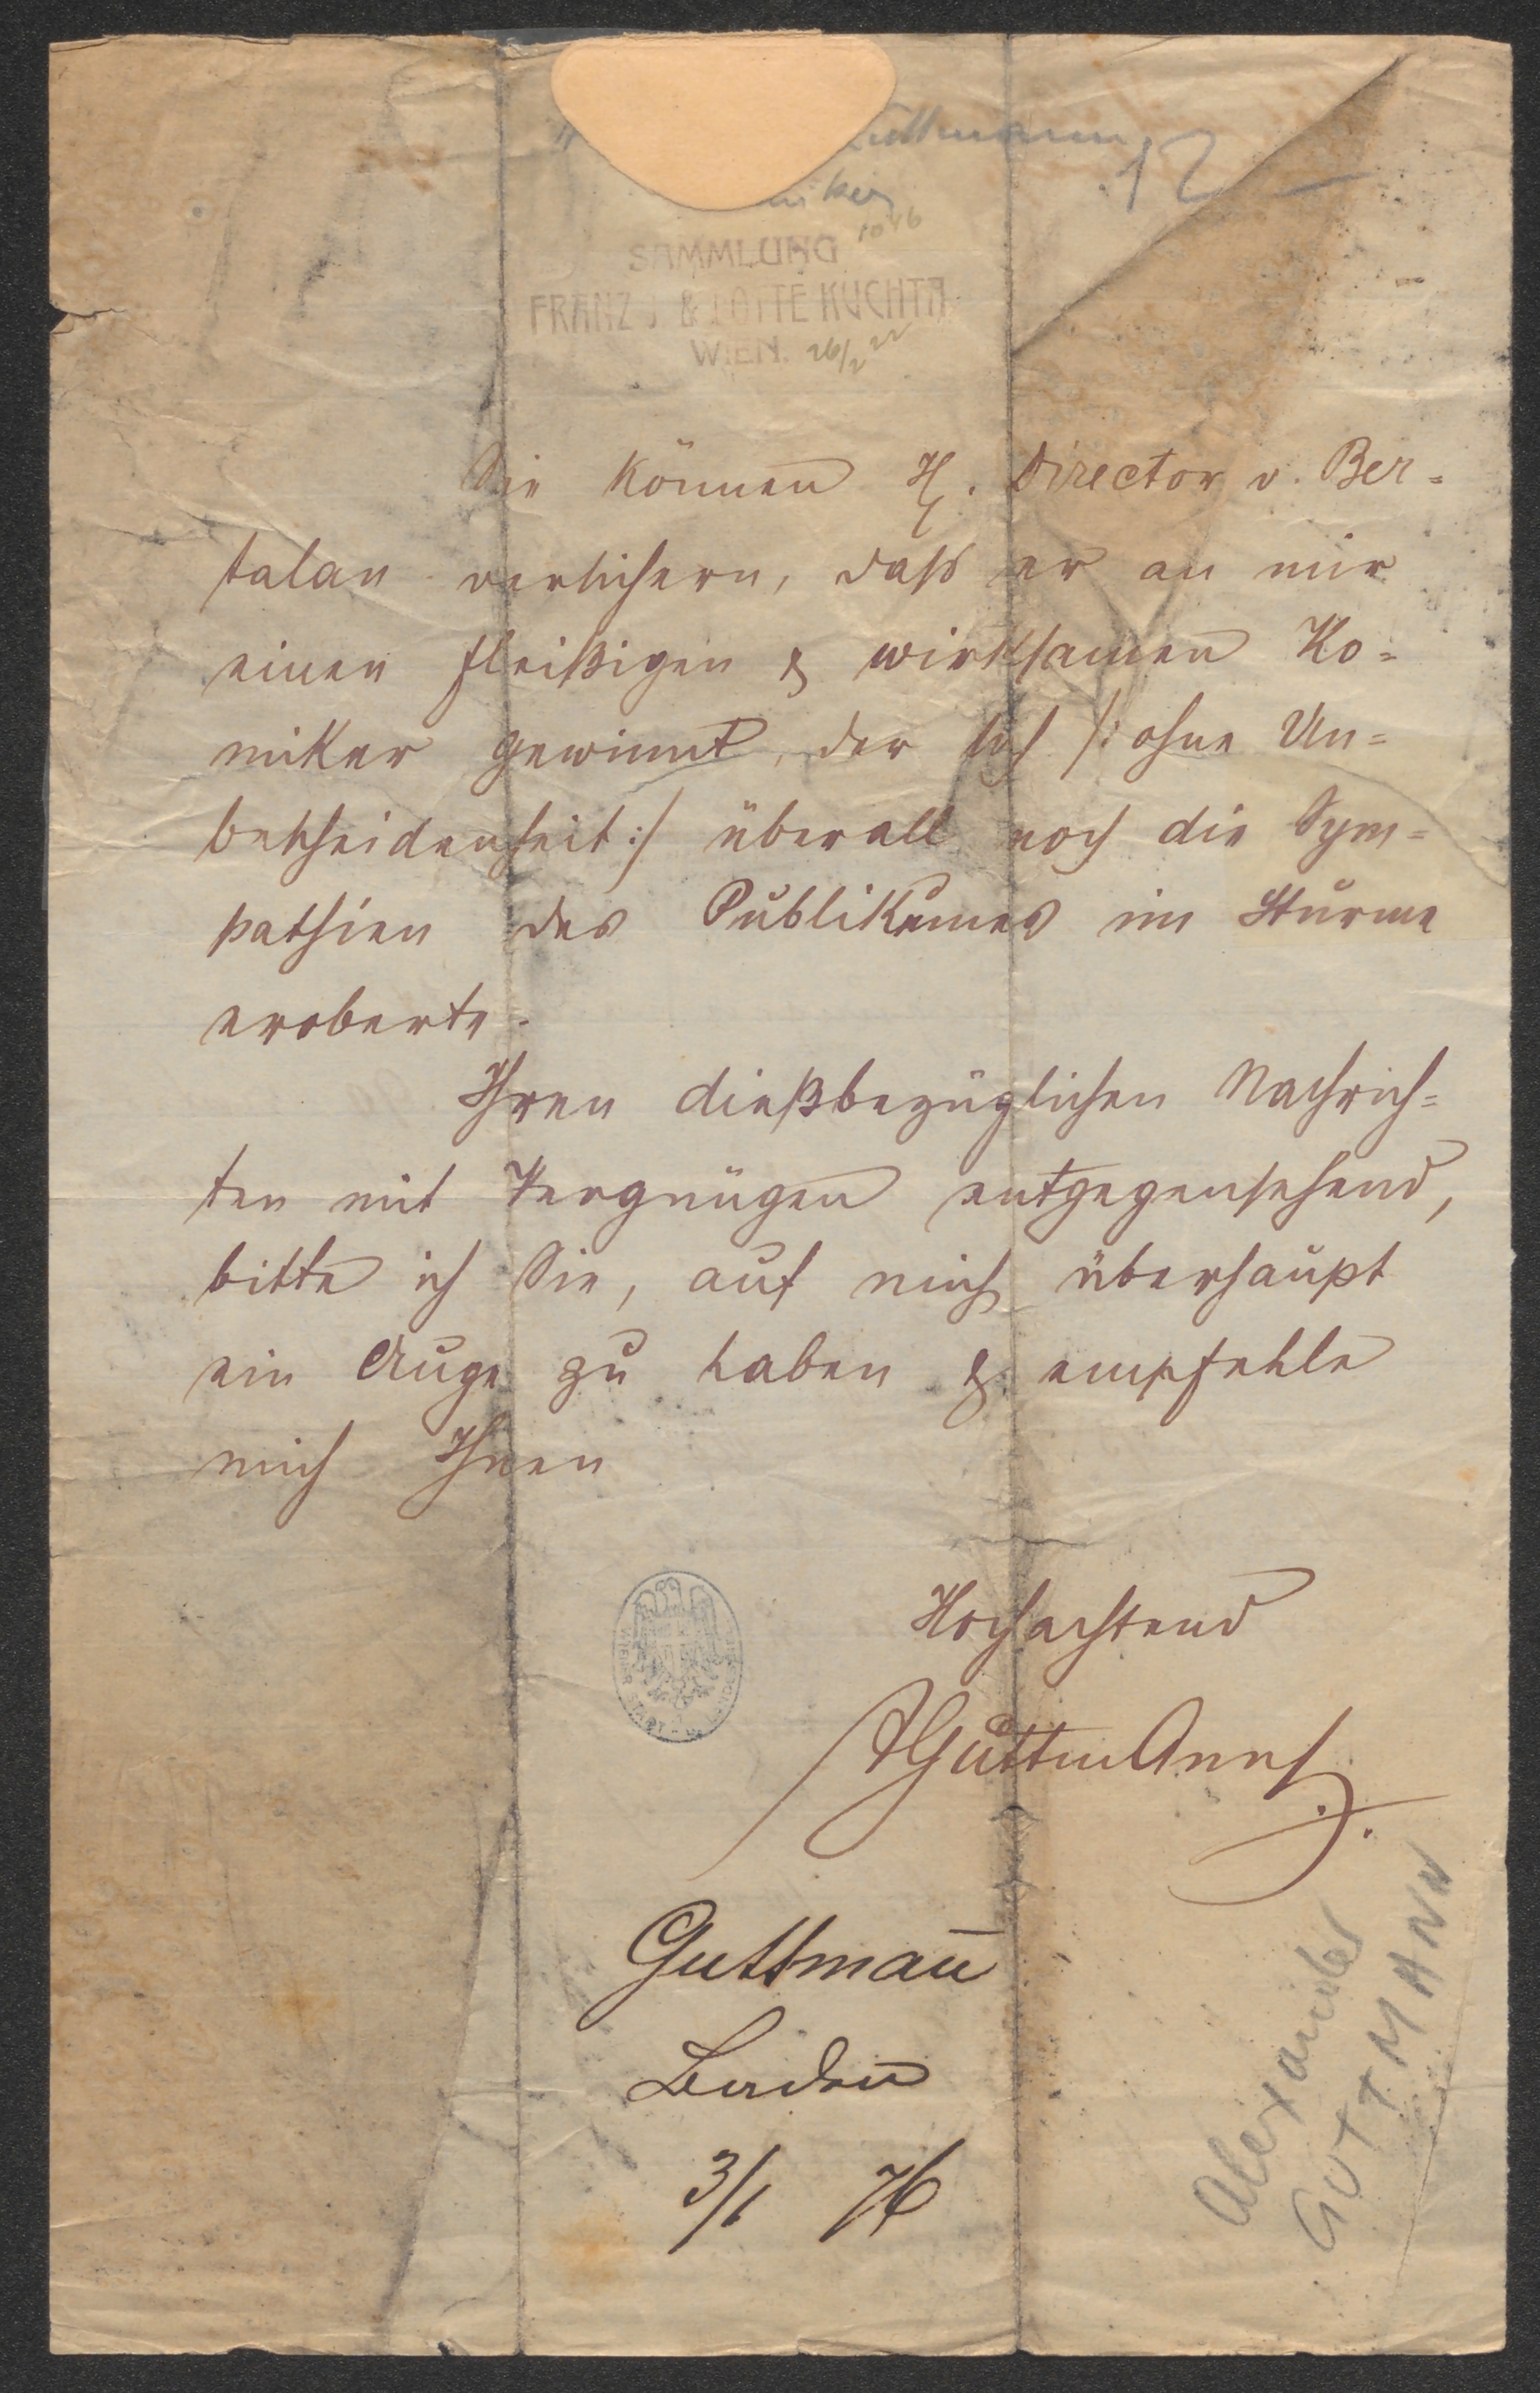 12
1046
SAMMLUNG
FRANZ J. & LOTTE KUCHTA
WIEN. 26/2 22
Sie können H. Director v. Ber=
talan versichern, daß er an mir
einen fleißigen & wirksamen Ko=
miker gewinnt, der sich /: ohne Un=
bescheidenheit :/ überall noch die Sym=
pathien des Publikumes im Sturme
eroberte.
Ihren dießbezüglichen Nachrich=
ten mit Vergnügen entgegensehend,
bitte ich Sie, auf mich überhaupt
ein Auge zu haben & empfehle
mich Ihnen
Hochachtend
AGuttmann
Guttmann̄
Baden
3/1 76
Alexander
GUTTMANN